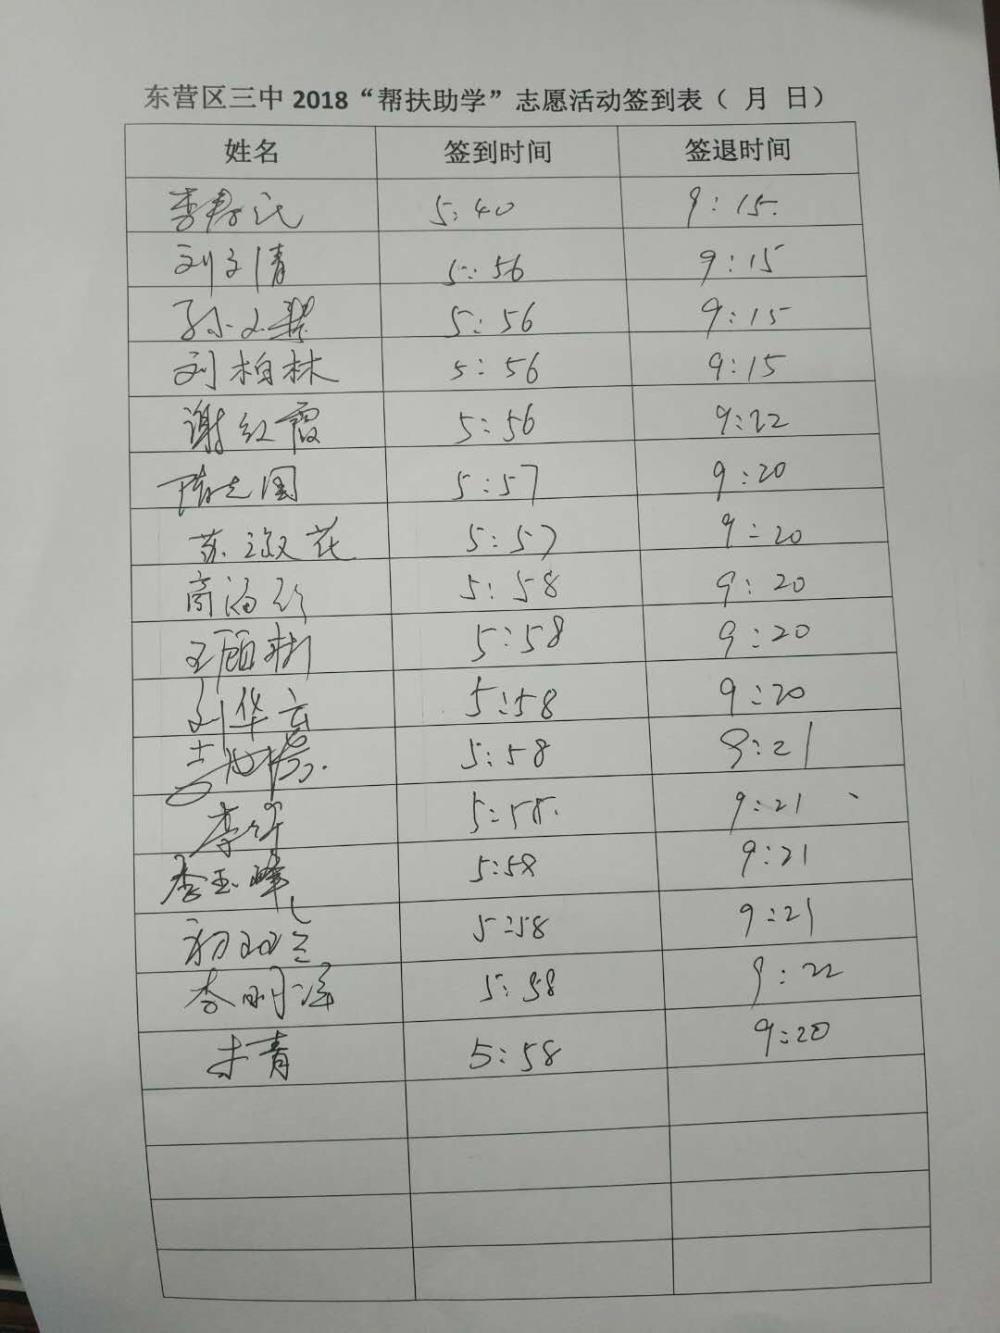 东营区三中 2018 “帮扶助学” 志愿活动签到表（ 月 日）
姓名 签到时间 签退时间
5:40 9:15
刘文清 5:56 9:15
5:56 9:15
刘柏林 5:56 9:15
谢红霞 5:56 9:22
5:57 9:20
苏淑花 5:57 9:20
5:58 9:20
王顾彬 5:58 9:20
刘华云 5:58 9:20
5:58 9:21
5:58 9:21
李玉峰 5:58 9:21
5:58 9:21
李明泽 5:58 9:22
青 5:58 9:20